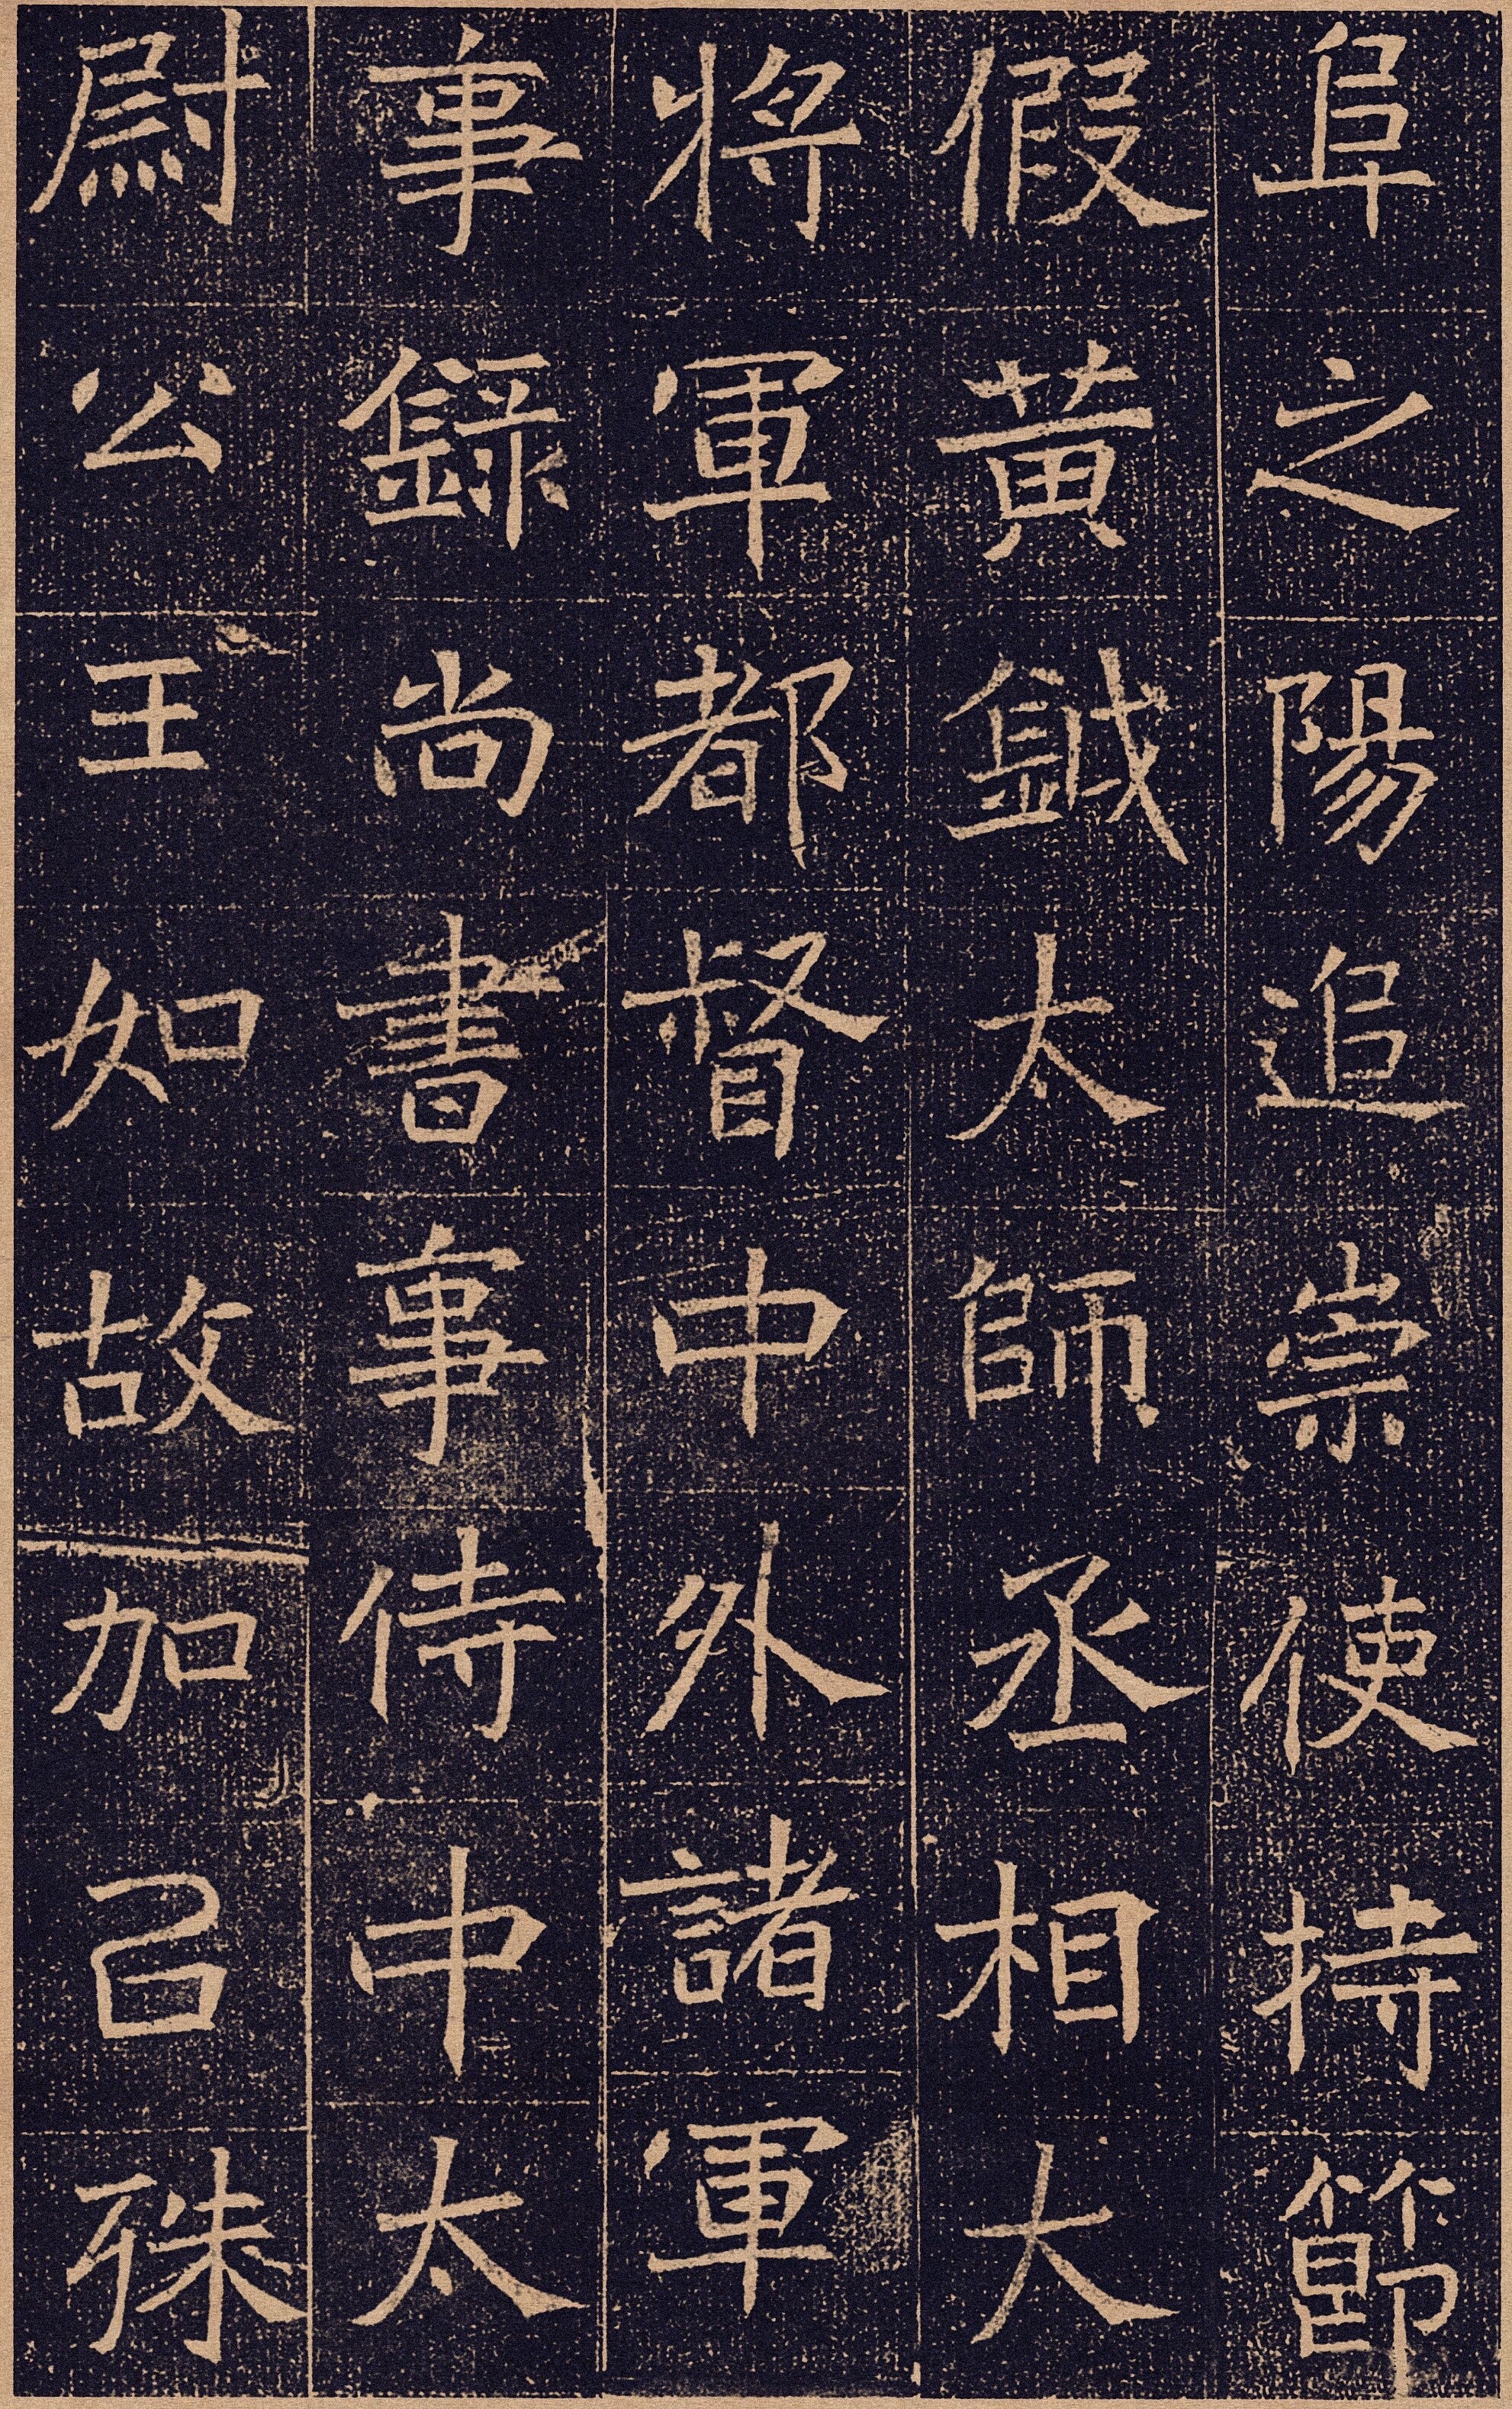 阜之陽追崇使持節
假黃鉞太師丞相大
將軍都督中外諸軍
事錄尚書事侍中太
尉公王如故加以殊